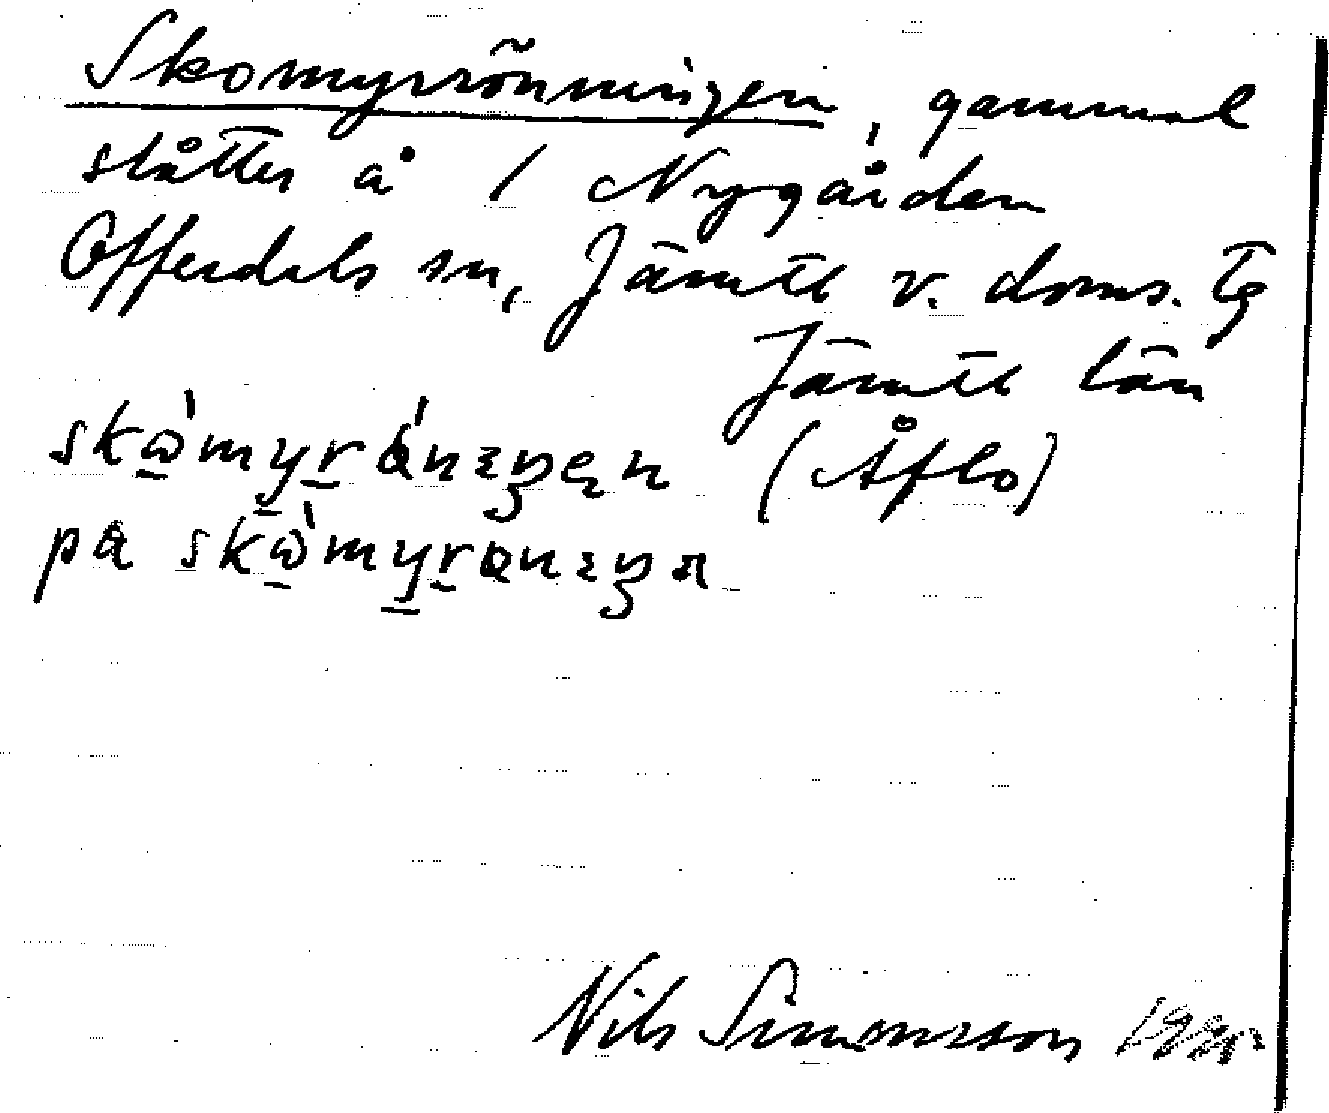 Skomyrrönningen, gammal
slåtter å 1 Nygården
Offerdals sn, Jämtl v. doms. tg
Jämtl län
(Åflo)
på
Nils Simonsson